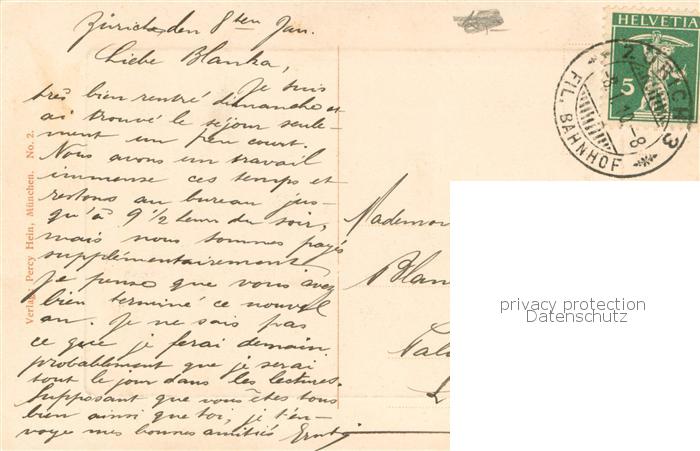 Zürich den 8ten Jan.
Liebe Blanka,
Je suis
très bien rentré dimanche et
ai trouvé le séjour seule-
ment un peu court.
Nous avons un travail
immense ces temps et
restons au bureau jus-
qu'à 9 1/2 heurs du soir,
mais nous sommes payés
supplémentairement
Je pense que vous avez
bien terminé ce nouvel
an. Je ne sais pas
ce que je ferai demain
probablement que je serai
tout le jour dans les lectures.
Supposant que vous êtes tous
bien ainsi que toi, je t'en-
voye mes bonnes amitiés
Verlag: Percy Hein, München. No. 2.
HELVETIA
5
ZÜRICH 3
FIL. BAHNHOF
Mademoi
Blan
privacy protection
Datenschutz